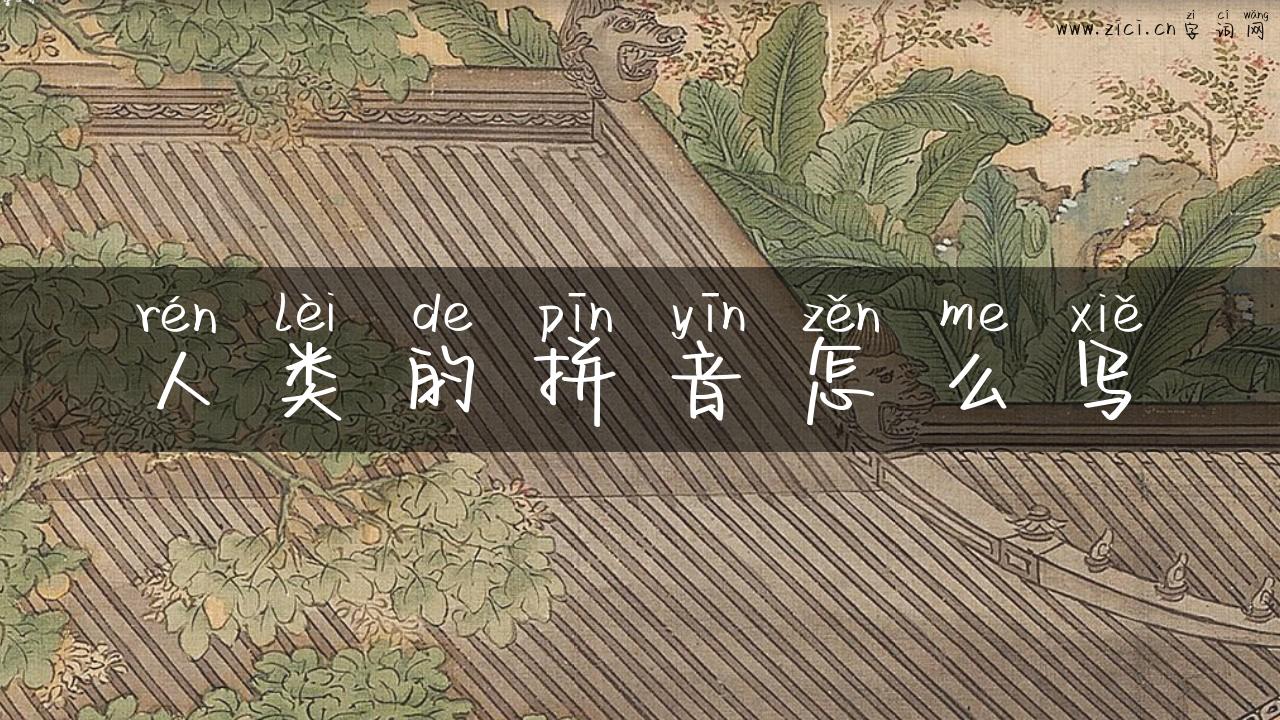 zì cí wǎng
www.zici.cn 字词网
rén lèi de pīn yīn zěn me xiě
人类的拼音怎么写